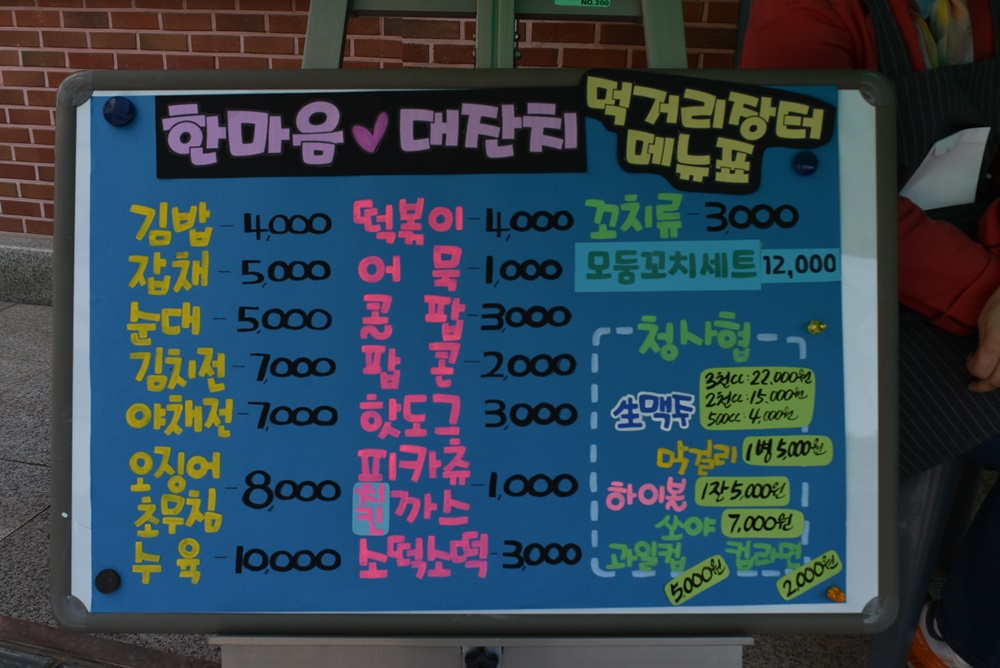 NO.200
한마음 대잔치
먹거리장터
메뉴표
김밥 - 4,000
잡채 - 5,000
순대 - 5,000
김치전 - 7,000
야채전 - 7,000
오징어
초무침 - 8,000
수육 - 10,000
떡볶이 - 4,000
어묵 - 1,000
콜팝 - 3,000
팝콘 - 2,000
핫도그 3,000
피카츄
치킨까스 - 1,000
소떡소떡 - 3,000
꼬치류 - 3,000
모둥꼬치세트 12,000
청사협
生맥주
3천cc : 22,000원
2천cc : 15,000원
500cc : 4,000원
막걸리 1병 5,000원
하이볼 1잔 5,000원
쏘야 7,000원
과일컵 5000원
컵라면 2,000원